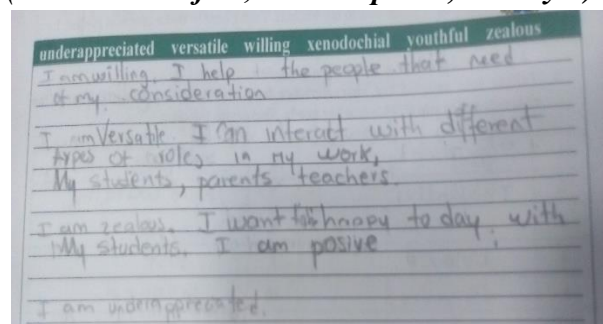 underappreciated versatile willing xenodochial youthful zealous
I am willing. I help the people that need
of my consideration
I am Versatile I can interact with different
types of roles in my work,
My students, parents teachers.
I am zealous. I want happy to day with
My students. I am posive
I am underappreciated.